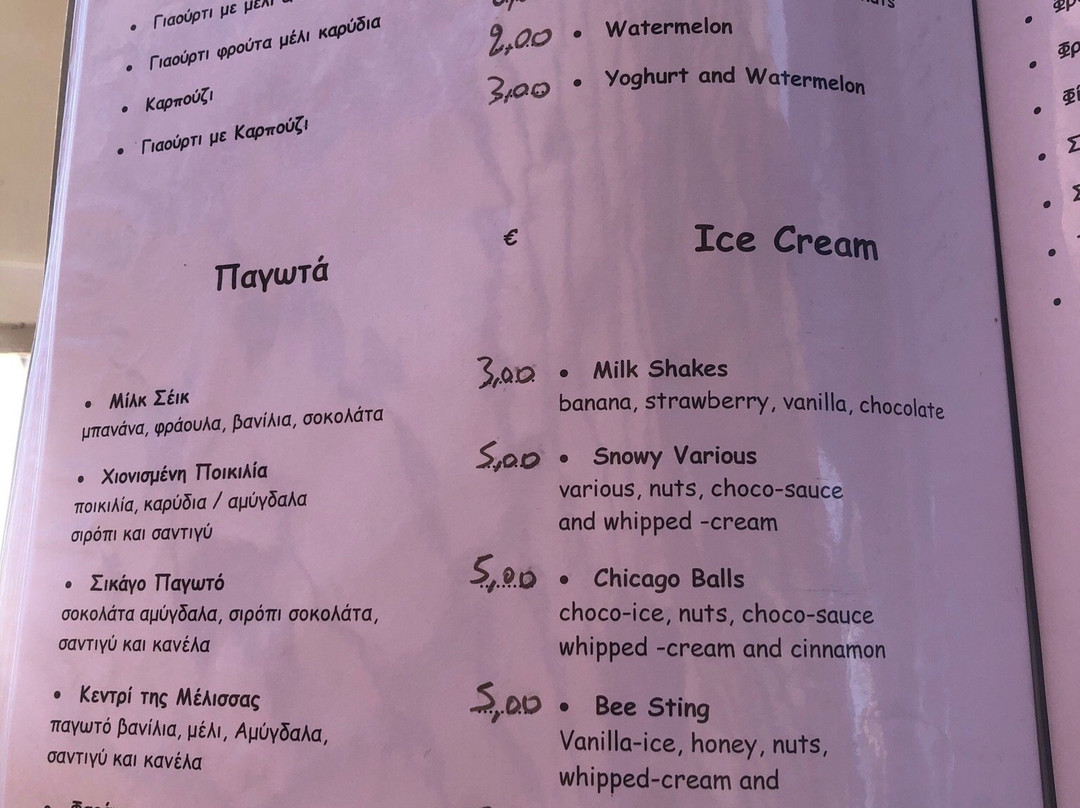 • Γιαούρτι με μέλι
• Γιαούρτι φρούτα μέλι καρύδια
• Καρπούζι
• Γιαούρτι με Καρπούζι
Παγωτά
• Μίλκ Σέικ
μπανάνα, φράουλα, βανίλια, σοκολάτα
• Χιονισμένη Ποικιλία
ποικιλία, καρύδια / αμύγδαλα
σιρόπι και σαντιγύ
• Σικάγο Παγωτό
σοκολάτα αμύγδαλα, σιρόπι σοκολάτα,
σαντιγύ και κανέλα
• Κεντρί της Μέλισσας
παγωτό βανίλια, μέλι, Αμύγδαλα,
σαντιγύ και κανέλα
2,00 • Watermelon
3,00 • Yoghurt and Watermelon
€ Ice Cream
3,00 • Milk Shakes
banana, strawberry, vanilla, chocolate
5,00 • Snowy Various
various, nuts, choco-sauce
and whipped -cream
5,00 • Chicago Balls
choco-ice, nuts, choco-sauce
whipped -cream and cinnamon
5,00 • Bee Sting
Vanilla-ice, honey, nuts,
whipped-cream and